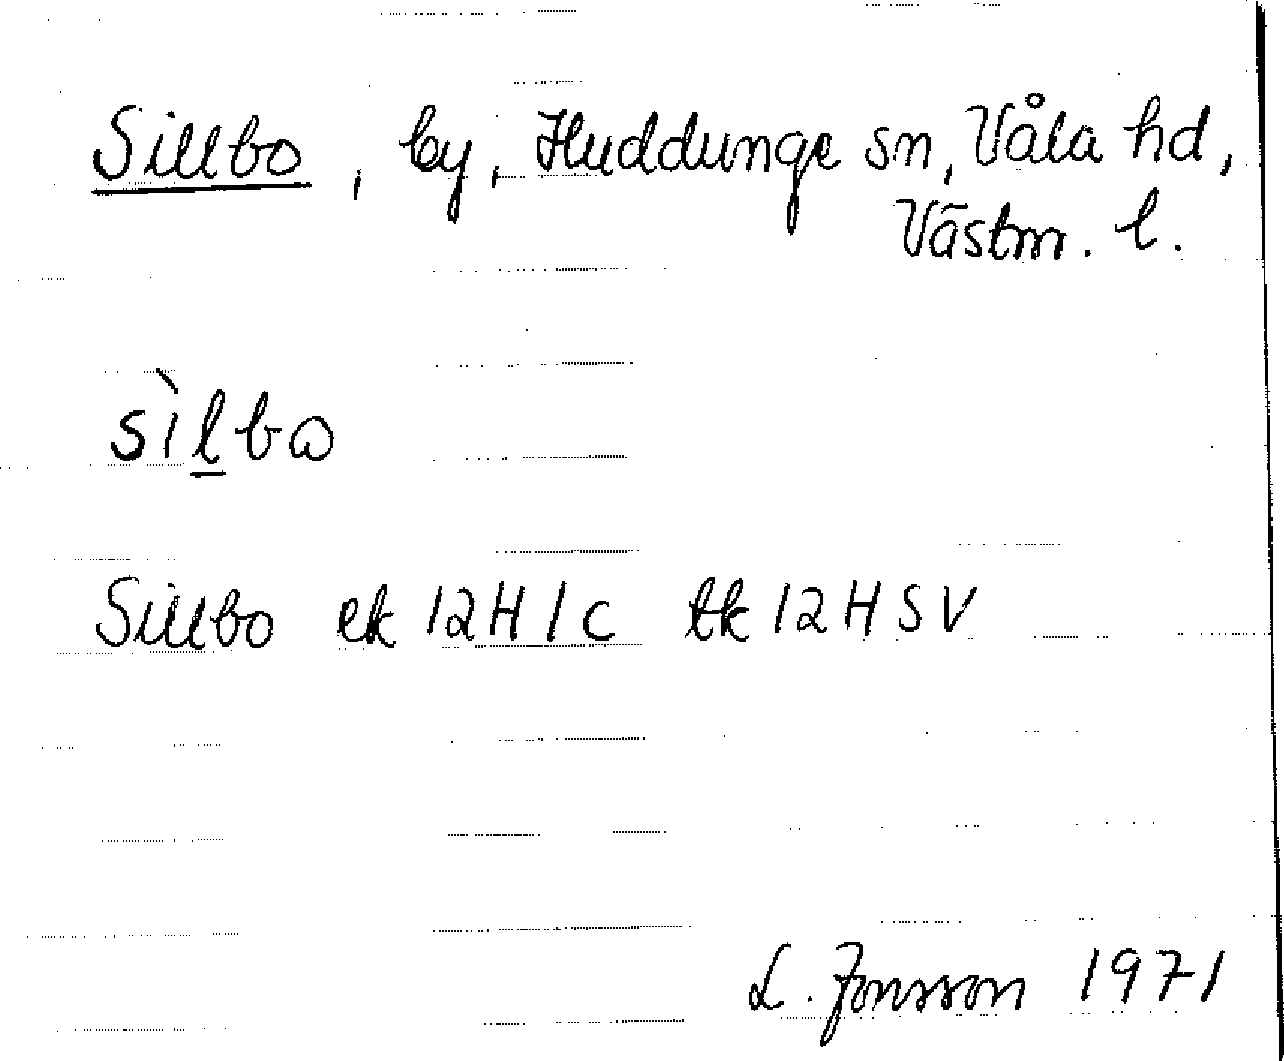 Sillbo, by, Huddunge sn, Våla hd,
Västm. l.
sìlbω
Sillbo ek 12H1c tk 12HSV
L. Jonsson 1971